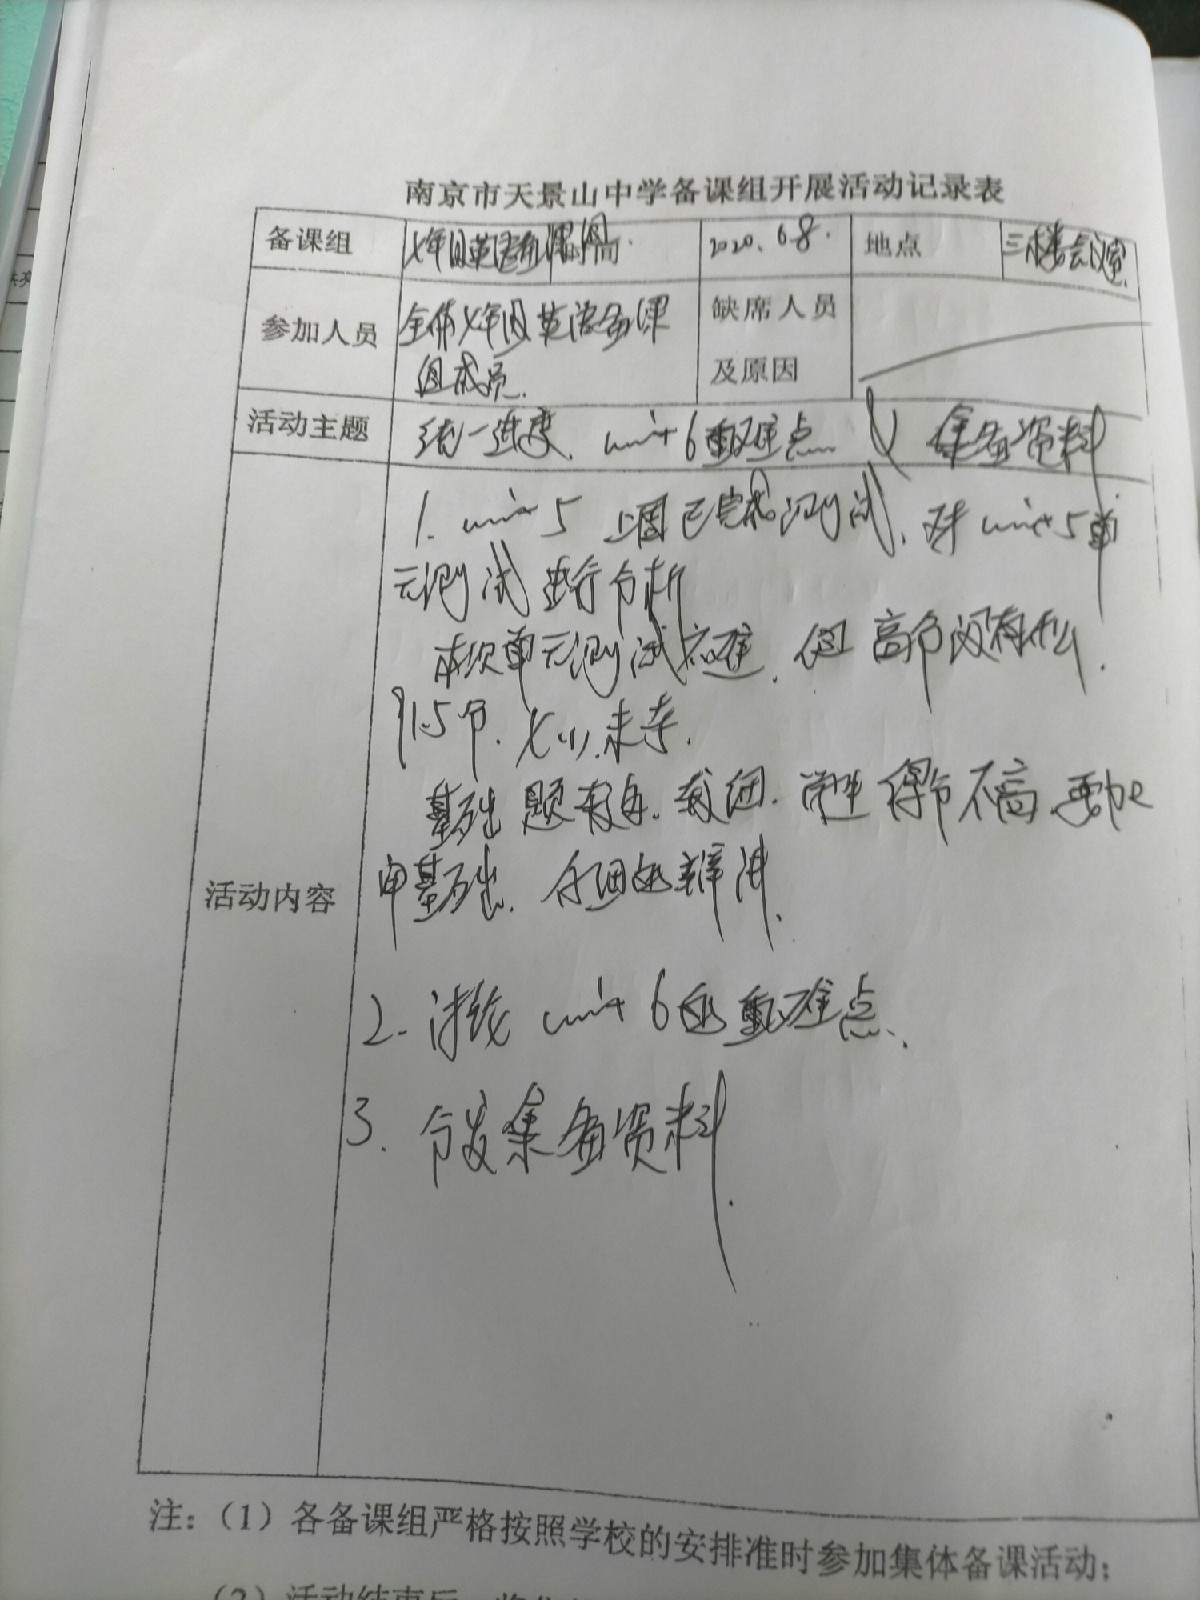 南京市天景山中学备课组开展活动记录表
备课组 七年级英语备课组 时间 2020.6.8. 地点 三楼会议室
参加人员 全体七年级英语备课 缺席人员
组成员. 及原因
活动主题 统一进度. unit 6重难点 集备资料
1. unit 5 上周已完成测试, 对 unit 5单
元测试进行分析
本次单元测试不难, 但高分没有什么.
91.5分. 七(1).
基础题 较细. 学生得分不高. 要加
基础. 仔细 讲.
2. 讨论 unit 6的重难点.
3. 分发集备资料.
活动内容
注:（1）各备课组严格按照学校的安排准时参加集体备课活动;